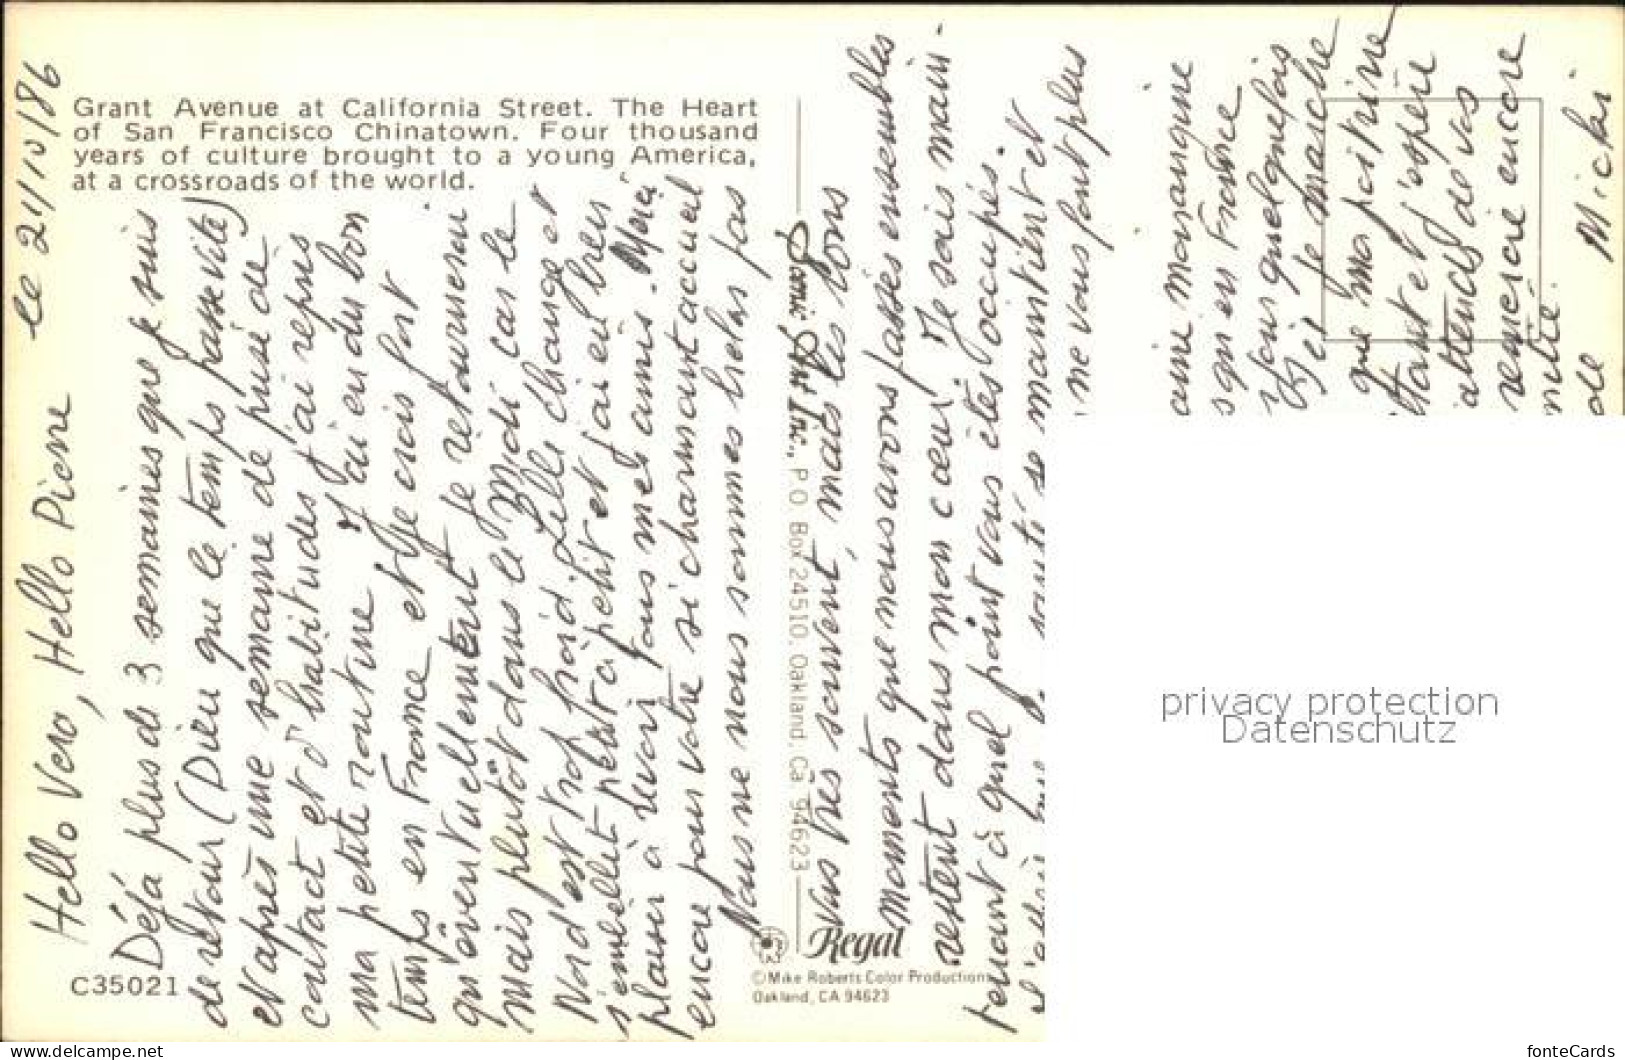 Grant Avenue at California Street. The Heart
of San Francisco Chinatown. Four thousand
years of culture brought to a young America,
at a crossroads of the world.
le 21/10/86
Hello Vero, Hello Pierre
Déjà plus de 3 semaines que je suis
de retour (Dieu que le temps passe vite)
et après une semaine de prise de
contact et d'habitudes j'ai repris
ma petite routine. J'ai eu du bon
temps en France et je crois fort
qu'éventuellement je retournerai
mais plutôt dans le Midi car le
Nord est trop froid. Lille change et
s'embellit petit à petit et j'ai eu bien
plaisir à revoir tous mes amis. Merci
encore pour votre si charmant accueil
Nous ne nous sommes hélas pas
vus très souvent, mais les bons
moments que nous avons passés ensembles
restent dans mon cœur. Je sais main-
tenant à quel point vous êtes occupés.
santé se maintient et
ne vous font plus
manque
en France
quelquefois
je marche
que ma poitrine
et j'espère
attends de vos
remercie encore
de Micki
C35021
Regal
©Mike Roberts Color Productions
Oakland, CA 94623
Inc., P.O. Box 24510, Oakland, Ca 94623
privacy protection
Datenschutz
www.delcampe.net
fonteCards